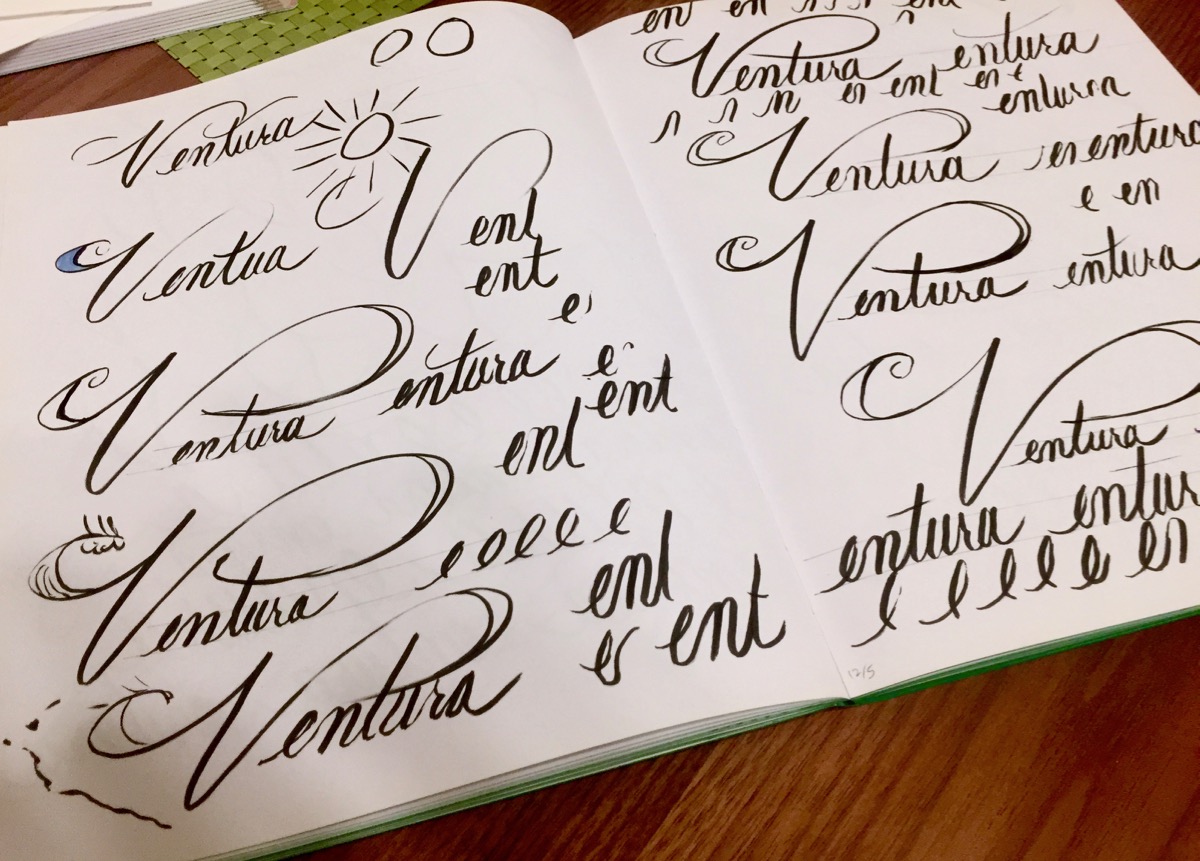 Ventura
V ent
Ventua ent
e
Ventura entura e
ent
ent
Ventura e e e e e
ent
Ventura er ent
en en
Ventura entura
er ent
entura
Ventura er entura
e en
Ventura entura
Ventura
entura entur
e e e e e en
12/5